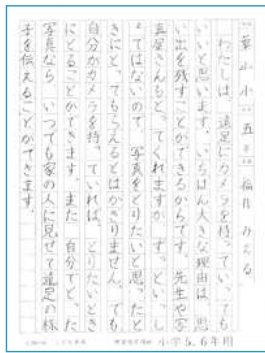 葉小小 五年
わたしは、遠足にカメラを持っていっても
いいと思います。いちばん大きな理由は、思
い出を残すことができるからです。先生や写
真屋さんもとってくれますが、ずっといっし
ょではないので、写真をとりたいと思ったと
きにとってもらえるとはかぎりません。でも
自分がカメラを持っていれば、とりたいとき
にとることができます。また、自分でとった
写真なら、いつでも家の人に見せて遠足の様
子を伝えることができます。
小学5、6年用